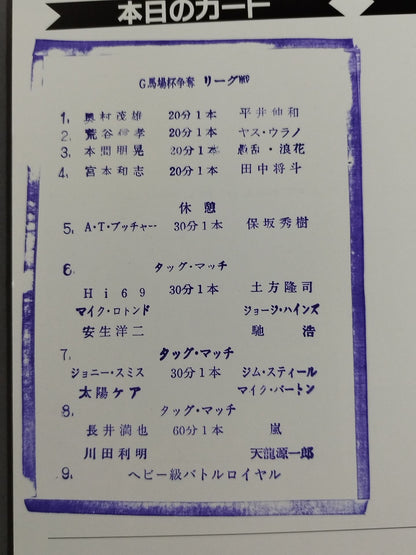 本日のカード
G馬場杯争奪 リーグ戦
1. 奥村茂雄 20分1本 平井伸和
2. 荒谷信孝 20分1本 ヤス・ウラノ
3. 本間朋晃 20分1本 愚乱・浪花
4. 宮本和志 20分1本 田中将斗
休憩
5. A・T・ブッチャー 30分1本 保坂秀樹
6. タッグ・マッチ
Hi69 30分1本 土方隆司
マイク・ロトンド ジョージ・ハインズ
安生洋二 馳 浩
7. タッグ・マッチ
ジョニー・スミス 30分1本 ジム・スティール
太陽ケア マイク・バートン
8. タッグ・マッチ
長井満也 60分1本 嵐
川田利明 天龍源一郎
9. ヘビー級バトルロイヤル